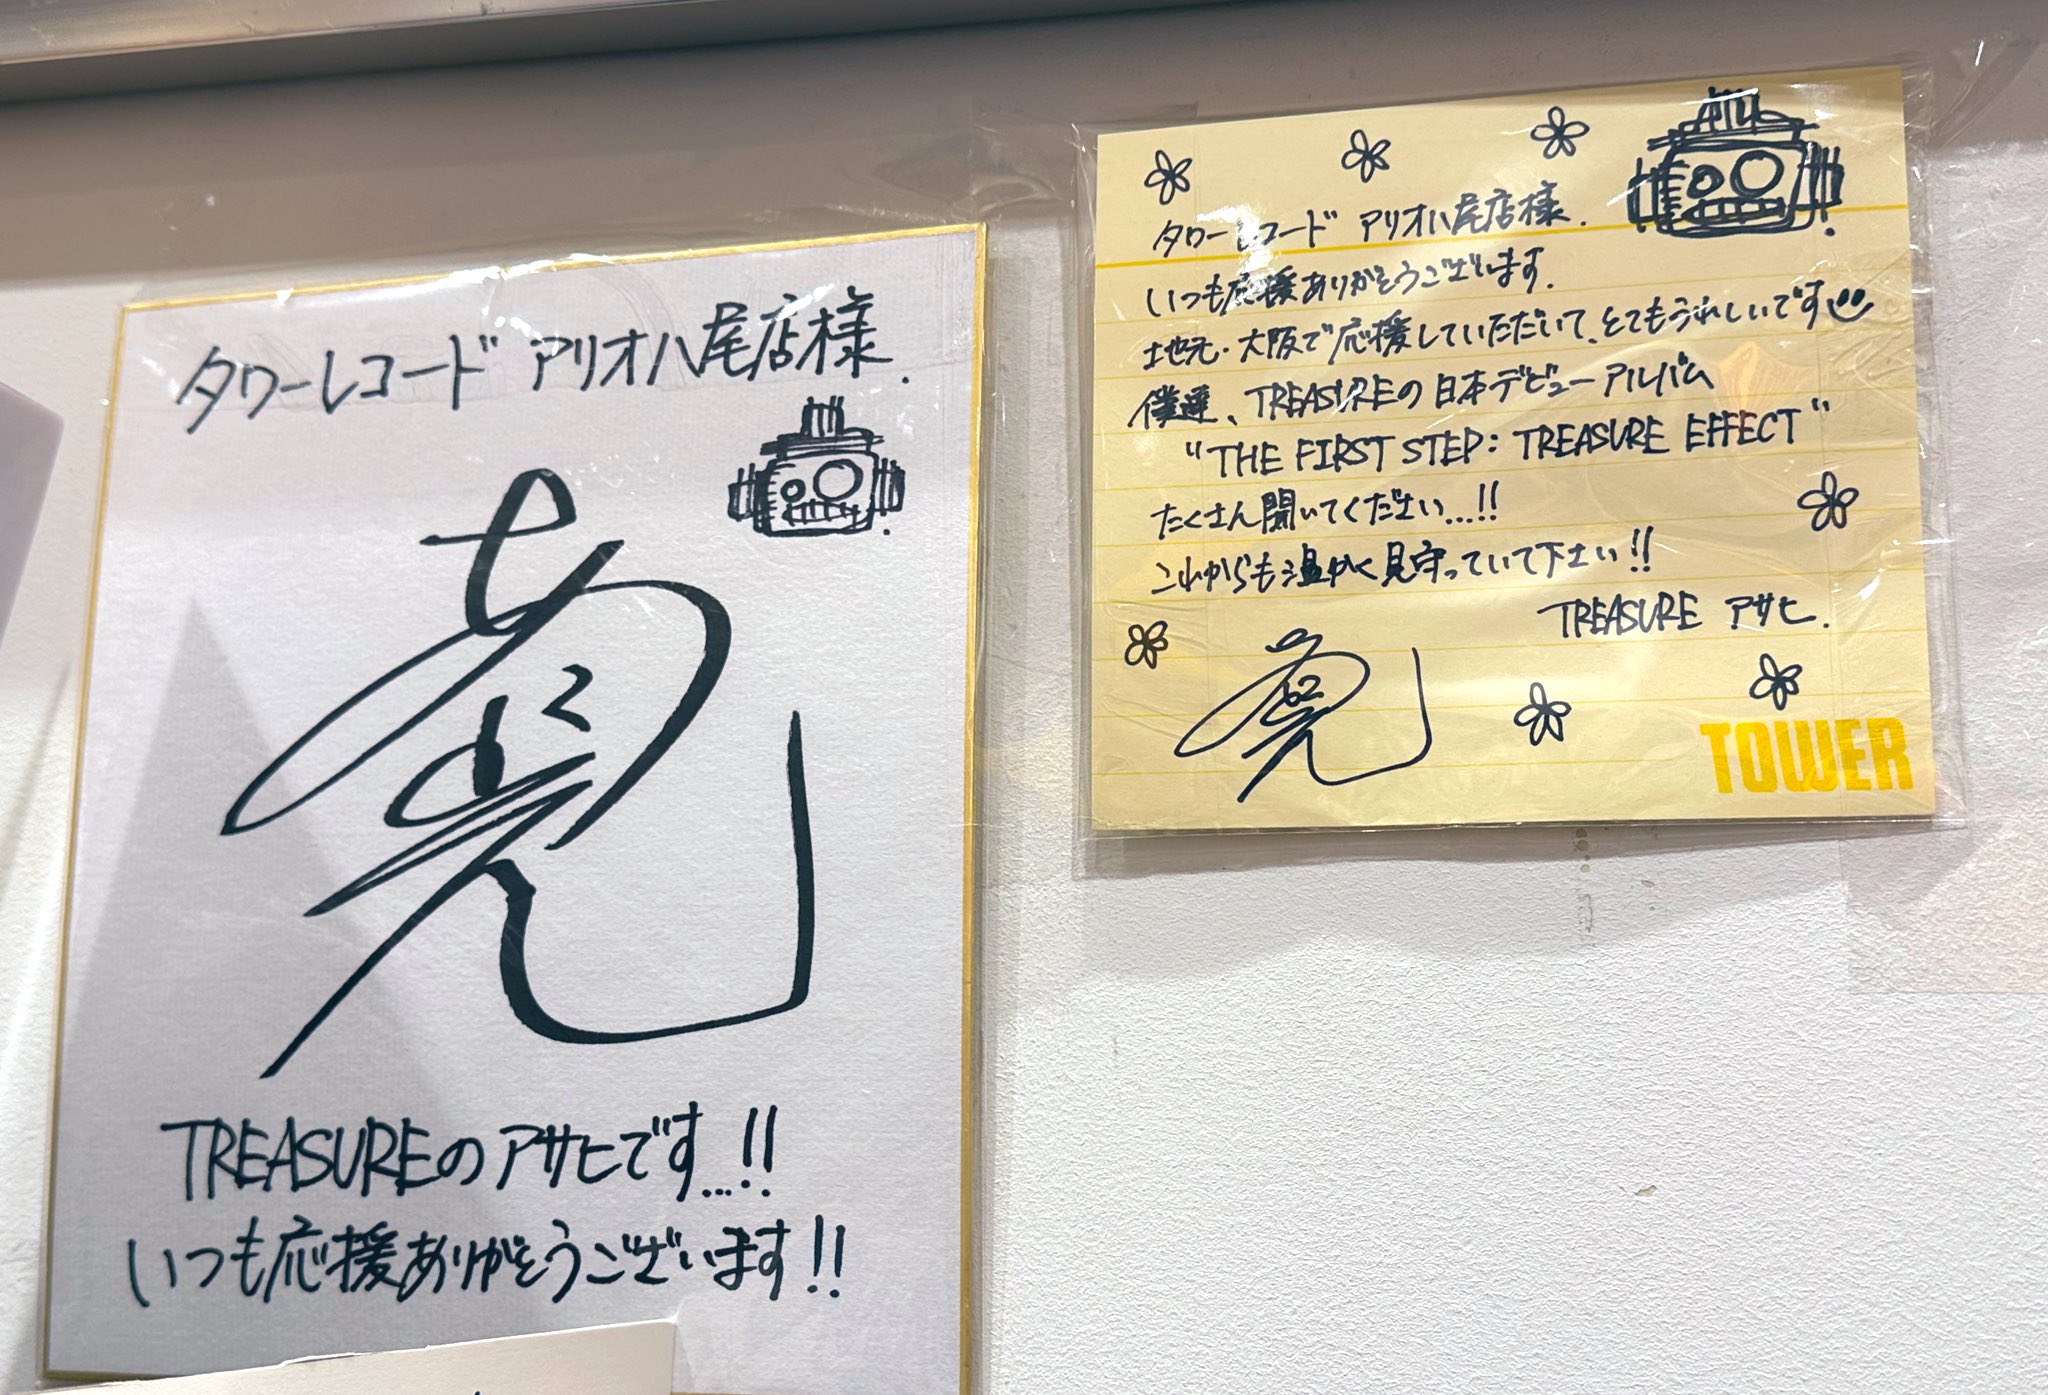 タワーレコード アリオ八尾店様.
TREASUREのアサヒです...!!
いつも応援ありがとうございます!!
タワーレコード アリオ八尾店様.
いつも応援ありがとうございます.
地元・大阪で応援していただいて、とてもうれしいです
僕達、TREASUREの日本デビューアルバム
"THE FIRST STEP: TREASURE EFFECT"
たくさん聞いてください...!!
これからも温かく見守っていて下さい!!
TREASURE アサヒ.
TOWER